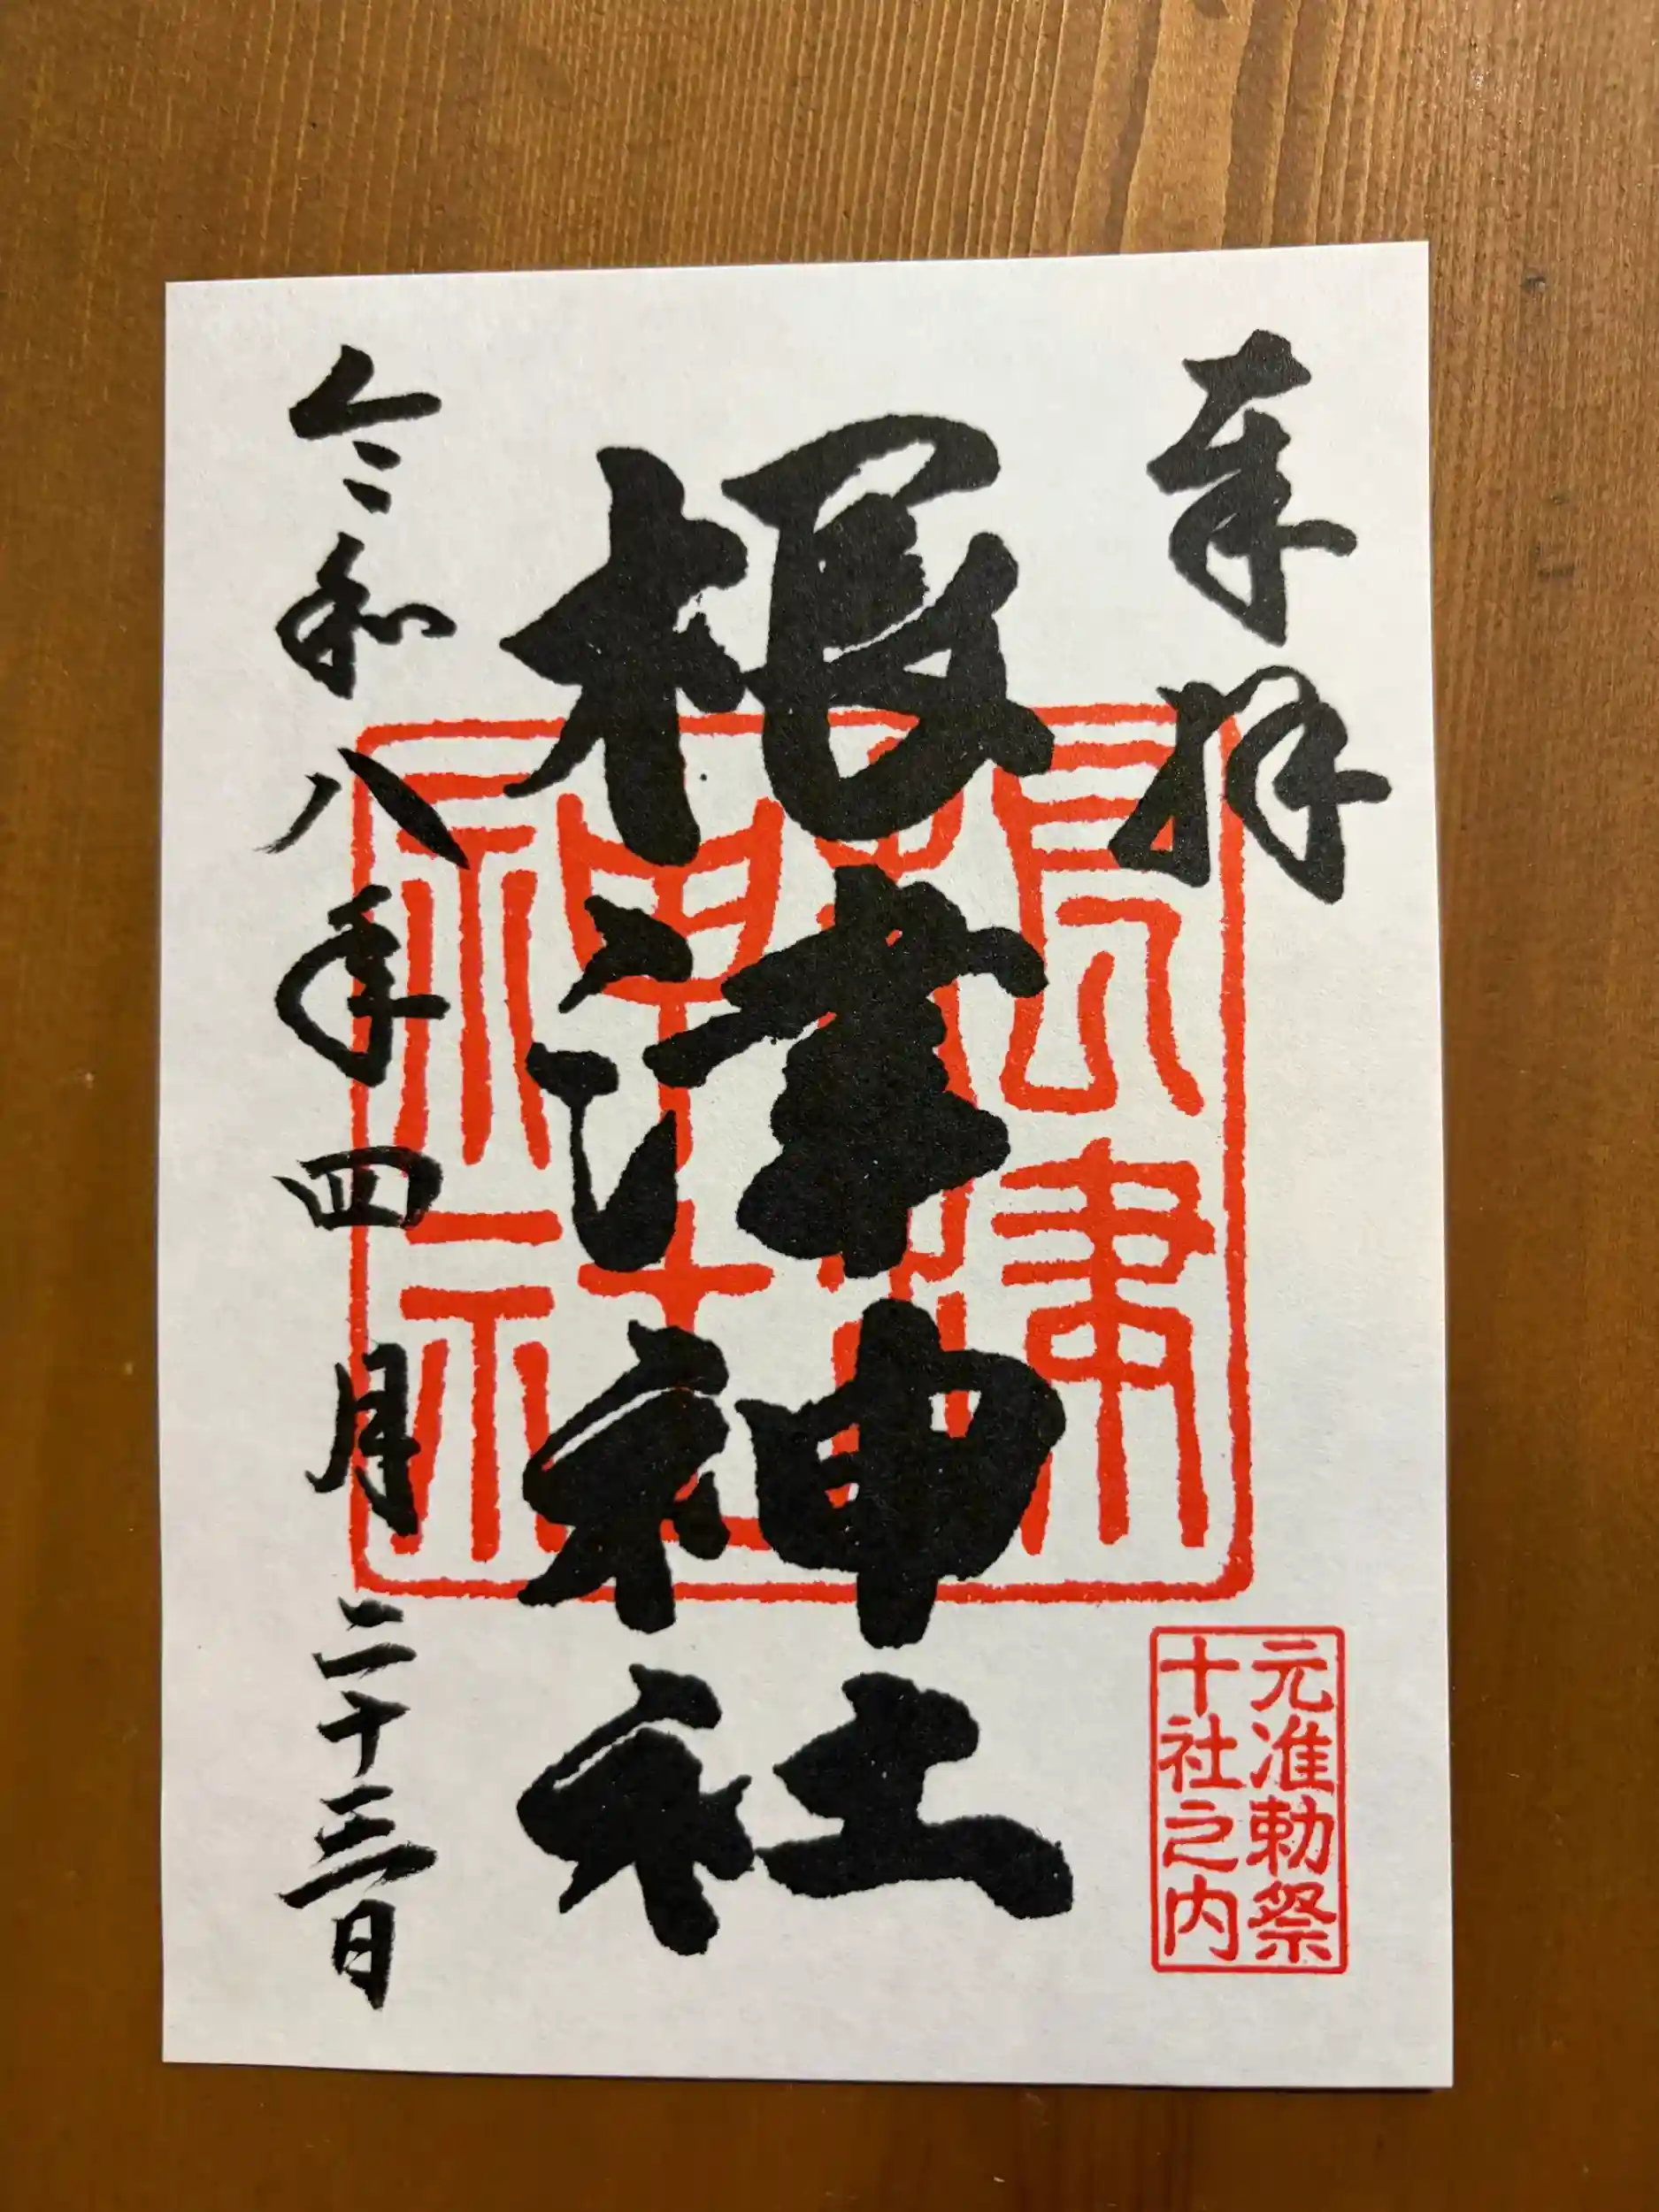 奉拝
元准勅祭
十社之内
根津神社
根津
神社
令和八年四月二十三日